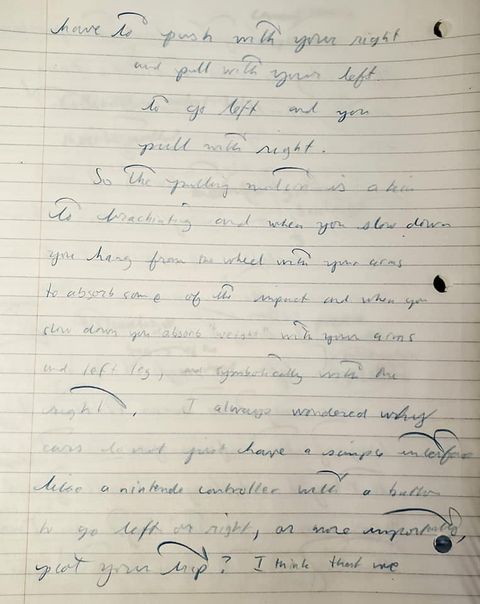 have to push with your right
and pull with your left.
to go left and you
pull with right.
So the pulling motion is a kin
to brachiating and when you slow down
you hang from the wheel with your arms
to absorb some of the impact and when you
slow down you absorb "weight" with your arms
and left leg, and symbolically with the
right. I always wondered why
cars do not just have a simple interface
like a nintendo controller with a button
to go left or right, or more importantly,
plot your trip? I think that we